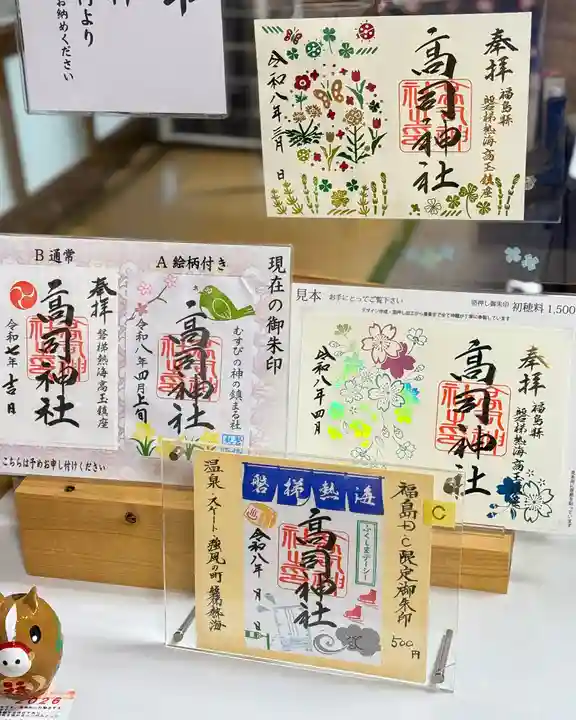 行より
お納めください
奉拝
福島縣
磐梯熱海高玉鎮座
高司神社
令和八年三月 日
現在の御朱印
A 絵柄付き
むすびの神の鎮まる社
高司神社
令和八年四月上旬
B 通常
奉拝
磐梯熱海高玉鎮座
高司神社
令和七年吉日
こちらは予めお申し付けください
見本 お手にとってご覧下さい
箔押し御朱印 初穂料 1,500
奉拝
福島縣
磐梯熱海高玉鎮座
高司神社
令和八年四月
磐梯熱海
福島D.C限定御朱印
C
ふくしまデーシー
高司神社
令和八年 月 日
温泉・スケート・強風の町 磐梯熱海
500円
2026